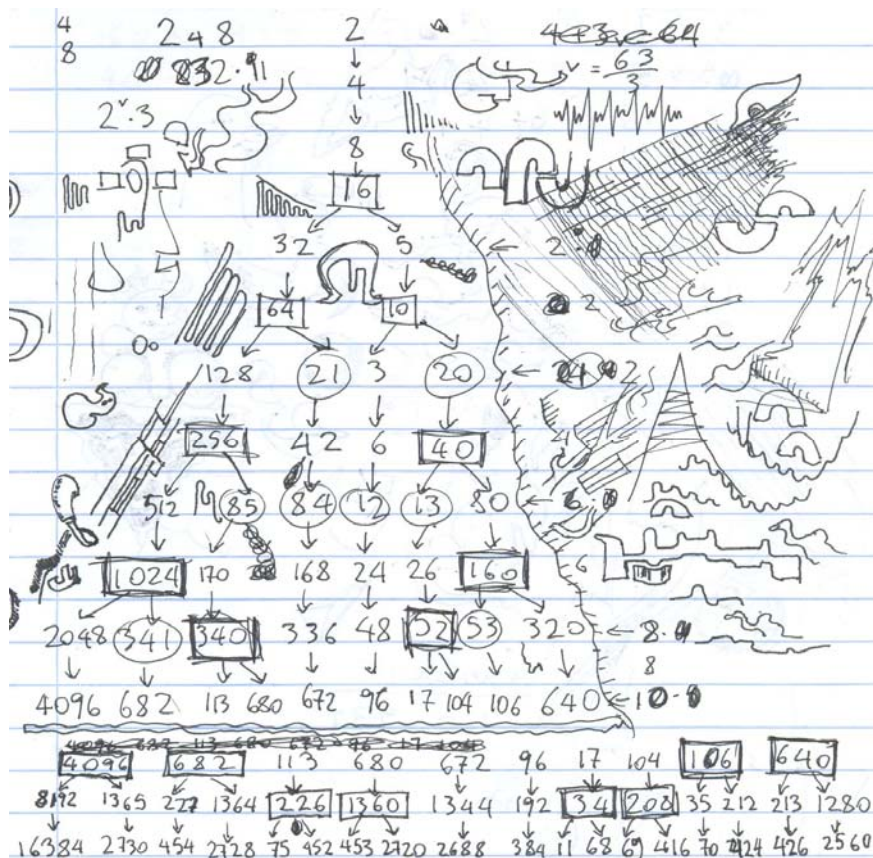 4 248 2
8 832.
4
2ᵛ.3
v = 63/3
8
16
32 5 ← 2
64 10 2
128 21 3 20 ← 2
256 42 6 40 4
512 85 84 12 13 80 ← 6
1024 170 168 24 26 160 6
2048 341 340 336 48 52 53 320 ← 8
8
4096 682 113 680 672 96 17 104 106 640 ← 10
4096 682 113 680 672 96 17 104
4096 682 113 680 672 96 17 104 106 640
8192 1365 227 1364 226 1360 1344 192 34 208 35 212 213 1280
16384 2730 454 2728 75 452 453 2720 2688 384 11 68 69 416 70 424 426 2560